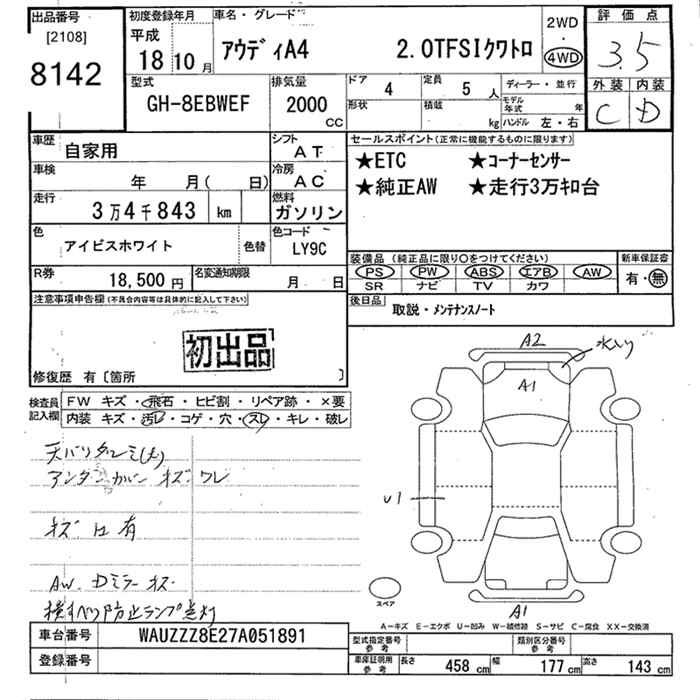 出品番号
[2108]
8142
初度登録年月
平成
18 10 月
車名・グレード
アウディA4 2.0TFSIクワトロ
2WD
・
4WD
評価点
3.5
外装 内装
C D
型式
GH-8EBWEF
排気量
2000
CC
ドア 4
定員 5 人
形状
積載 kg
ディーラー・並行
モデル年式 年
ハンドル 左・右
車歴
自家用
シフト
AT
車検
年 月( 日)
冷房
AC
走行
3万4千843 km
燃料
ガソリン
色
アイビスホワイト
色替
色コード
LY9C
R券
18,500 円
名変通知期限
月 日
セールスポイント(正常に機能するものに限ります)
★ETC ★コーナーセンサー
★純正AW ★走行3万キロ台
装備品(純正品に限り○をつけてください)
新車保証書
PS PW ABS エアB AW
SR ナビ TV カワ
有・無
後日品
取説・メンテナンスノート
注意事項申告欄(不具合内容等は具体的に記入して下さい)
初出品
修復歴 有〔箇所 〕
検査員
記入欄
FW キズ・飛石・ヒビ割・リペア跡・×要
内装 キズ・汚レ・コゲ・穴・スレ・キレ・破レ
天バリタルミ(大)
アンダーカバー キズ・ワレ
キズ 凹 有
AW. Dミラーキズ
横すべり防止ランプ点灯
A2
A1
U1
A1
スペア
A-キズ E-エクボ U-凹み W-補修跡 S-サビ C-腐食 XX-交換済
車台番号
WAUZZZ8E27A051891
登録番号
型式指定番号
参考
類別区分番号
参考
車庫証明用
参考
長さ 458 cm
幅 177 cm
高さ 143 cm